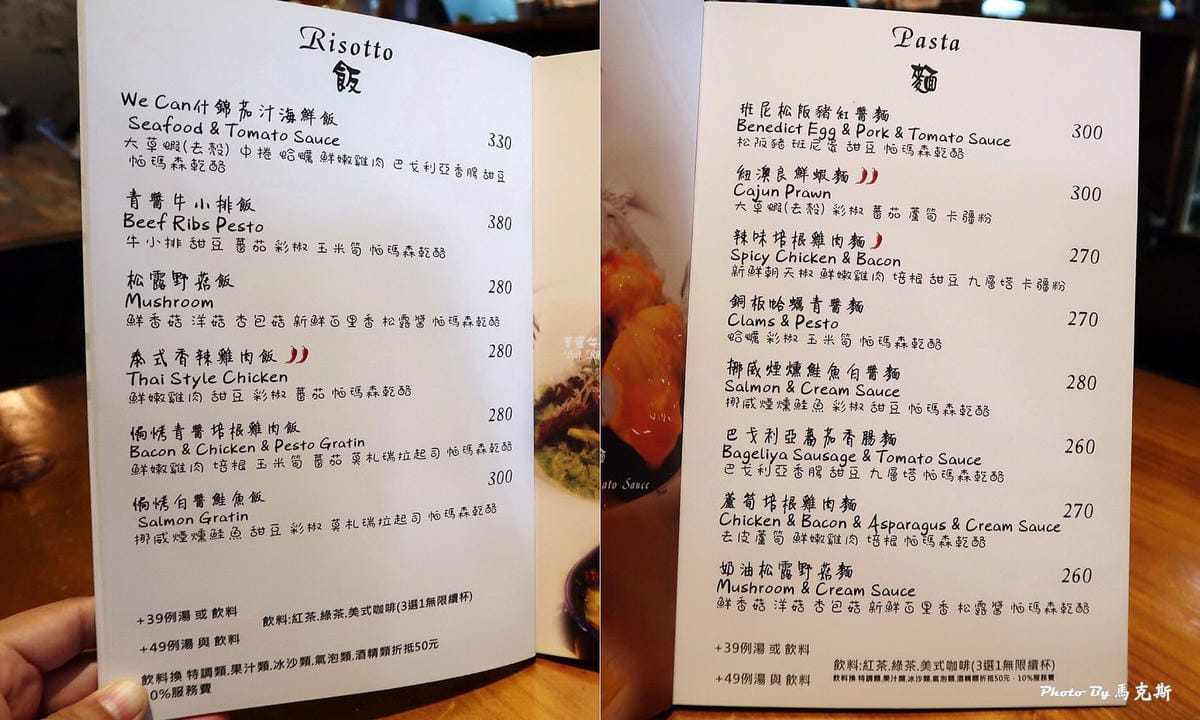 Risotto
飯
We Can什錦茄汁海鮮飯
Seafood & Tomato Sauce
330
大草蝦(去殼) 中捲 蛤蠣 鮮嫩雞肉 巴戈利亞香腸 甜豆
帕瑪森乾酪
青醬牛小排飯
Beef Ribs Pesto
380
牛小排 甜豆 蕃茄 彩椒 玉米筍 帕瑪森乾酪
松露野菇飯
Mushroom
280
鮮香菇 洋菇 杏包菇 新鮮百里香 松露醬 帕瑪森乾酪
泰式香辣雞肉飯
Thai Style Chicken
280
鮮嫩雞肉 甜豆 彩椒 蕃茄 帕瑪森乾酪
焗烤青醬培根雞肉飯
Bacon & Chicken & Pesto Gratin
280
鮮嫩雞肉 培根 玉米筍 蕃茄 莫札瑞拉起司 帕瑪森乾酪
焗烤白醬鮭魚飯
Salmon Gratin
300
挪威煙燻鮭魚 甜豆 彩椒 莫札瑞拉起司 帕瑪森乾酪
+39例湯 或 飲料
飲料:紅茶.綠茶.美式咖啡(3選1無限續杯)
+49例湯 與 飲料
飲料換 特調類.果汁類.冰沙類.氣泡類.酒精類折抵50元
10%服務費
Pasta
麵
班尼松阪豬紅醬麵
Benedict Egg & Pork & Tomato Sauce
300
松阪豬 班尼蛋 甜豆 帕瑪森乾酪
紐澳良鮮蝦麵
Cajun Prawn
300
大草蝦(去殼) 彩椒 蕃茄 蘆筍 卡疆粉
辣味培根雞肉麵
Spicy Chicken & Bacon
270
新鮮朝天椒 鮮嫩雞肉 培根 甜豆 九層塔 卡疆粉
銅板蛤蠣青醬麵
Clams & Pesto
270
蛤蠣 彩椒 玉米筍 帕瑪森乾酪
挪威煙燻鮭魚白醬麵
Salmon & Cream Sauce
280
挪威煙燻鮭魚 彩椒 甜豆 帕瑪森乾酪
巴戈利亞蕃茄香腸麵
Bageliya Sausage & Tomato Sauce
260
巴戈利亞香腸 甜豆 九層塔 帕瑪森乾酪
蘆筍培根雞肉麵
Chicken & Bacon & Asparagus & Cream Sauce
270
去皮蘆筍 鮮嫩雞肉 培根 帕瑪森乾酪
奶油松露野菇麵
Mushroom & Cream Sauce
260
鮮香菇 洋菇 杏包菇 新鮮百里香 松露醬 帕瑪森乾酪
+39例湯 或 飲料
飲料:紅茶.綠茶.美式咖啡(3選1無限續杯)
+49例湯 與 飲料
飲料換 特調類.果汁類.冰沙類.氣泡類.酒精類折抵50元 . 10%服務費
Sauce
Photo By 馬克斯